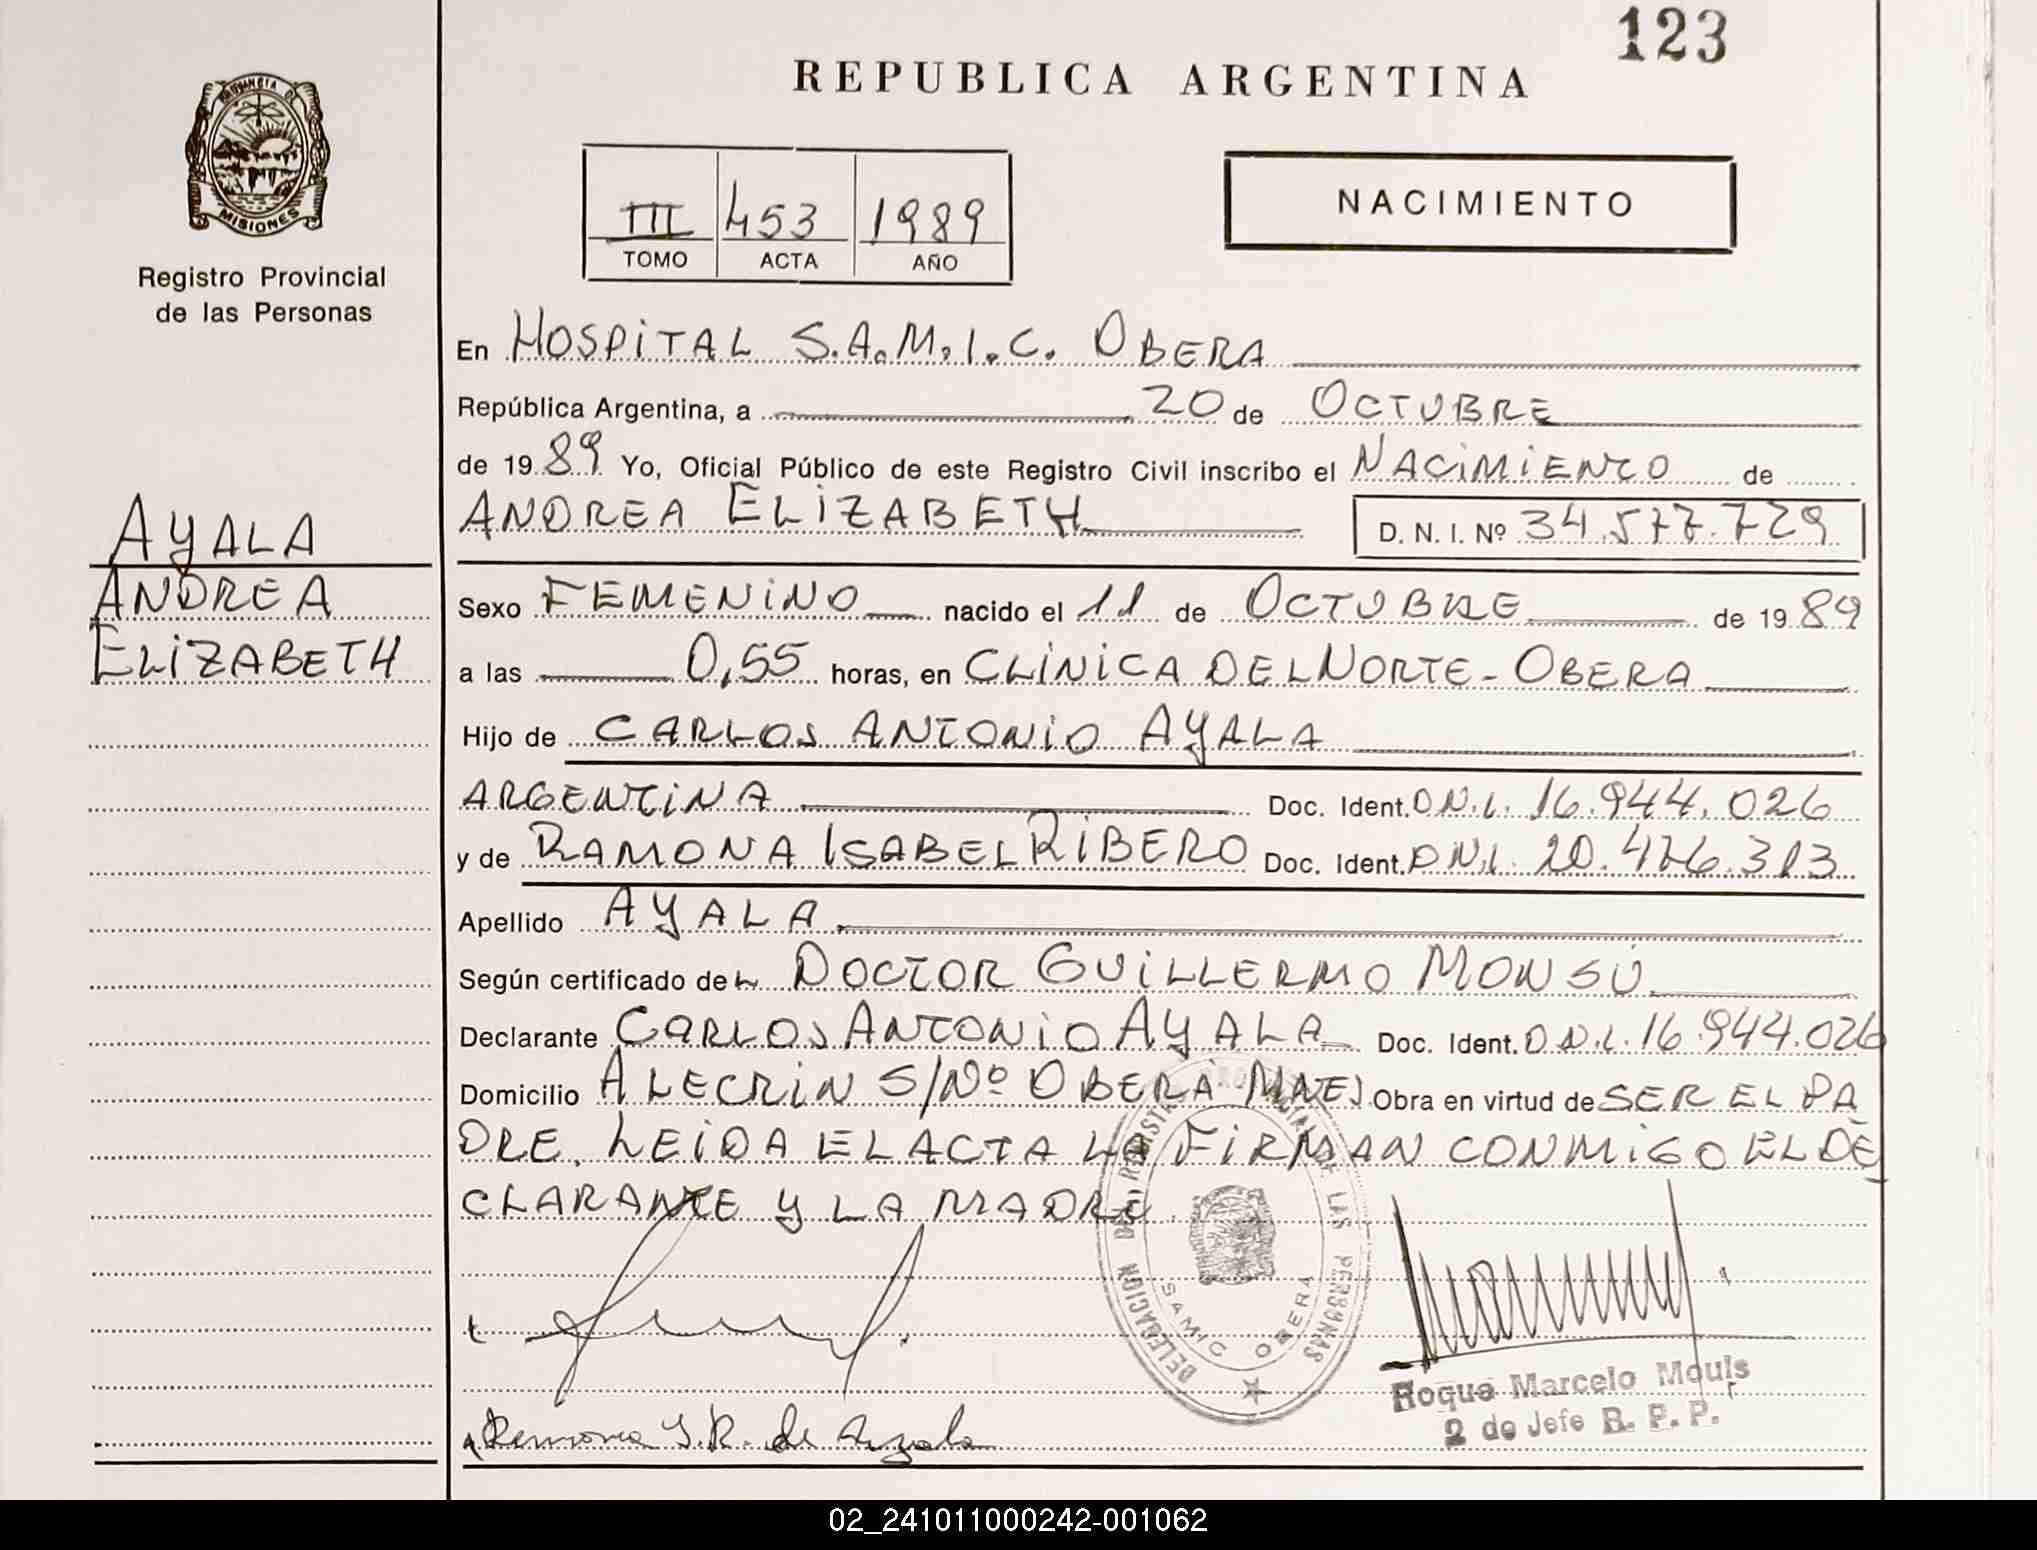 123
REPUBLICA ARGENTINA
PROVINCIA DE
MISIONES
Registro Provincial
de las Personas
III 453 1989
TOMO ACTA AÑO
NACIMIENTO
En HOSPITAL S.A.M.I.C. OBERA
República Argentina, a 20 de OCTUBRE
de 1989 Yo, Oficial Público de este Registro Civil inscribo el NACIMIENTO de
ANDREA ELIZABETH D. N. I. Nº 34.577.729
AYALA
ANDREA
ELIZABETH
Sexo FEMENINO nacido el 11 de OCTUBRE de 1989
a las 0,55 horas, en CLINICA DEL NORTE - OBERA
Hijo de CARLOS ANTONIO AYALA
ARGENTINA Doc. Ident. D.N.I. 16.944.026
y de RAMONA ISABEL RIBERO Doc. Ident. D.N.I. 20.476.313
Apellido AYALA
Según certificado de L DOCTOR GUILLERMO MONSÚ
Declarante CARLOS ANTONIO AYALA Doc. Ident. D.N.I. 16.944.026
Domicilio ALECRIN S/Nº OBERA Obra en virtud de SER EL PA
DRE. LEIDA EL ACTA LA FIRMAN CONMIGO EL DE
CLARANTE Y LA MADRE.
DELEGACION DEL REGISTRO PROVINCIAL DE LAS PERSONAS
SAMIC OBERA
Ramona I.R. de Ayala
Roque Marcelo Mouls
2 do Jefe R. P. P.
02_241011000242-001062